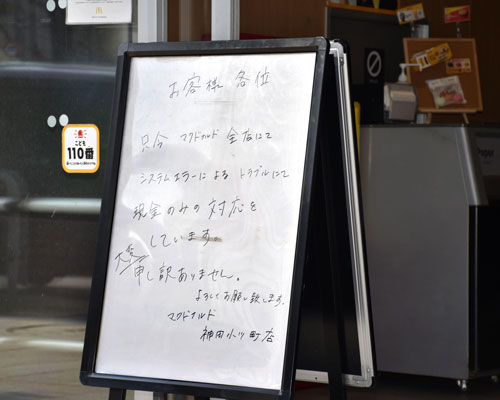 お客様各位
只今 マクドナルド 全店にて
システムエラーによる トラブルにて
現金のみの対応を
しています。
大変
申し訳ありません。
よろしくお願い致します。
マクドナルド
神田小川町店
こども
110番
Paper